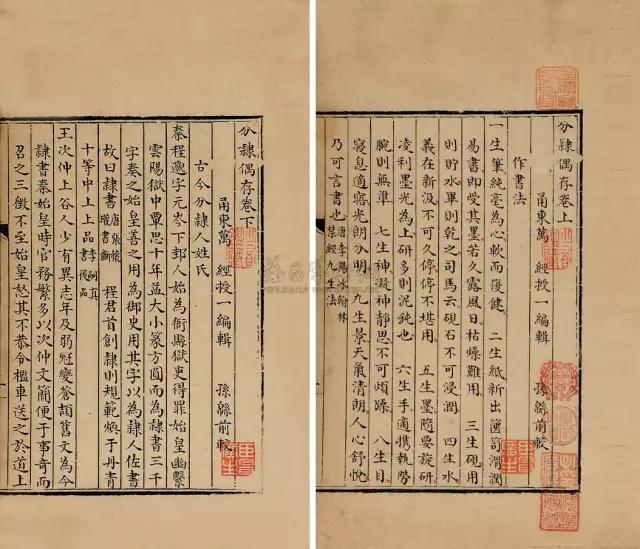 分隸偶存卷上
甬東萬 經授一編輯 孫緜前較
作書法
一生筆純毫為心軟而復健 二生紙新出篋笥滑潤
易書即受其墨若久露風日枯燥難用 三生硯用
則貯水畢則乾之司馬云硯石不可浸潤 四生水
義在新汲不可久停停不堪用 五生墨隨要旋研
凌利墨光為上研多則泥鈍也 六生手適携執勢
腕則無準 七生神凝神靜思不可煩躁 八生目
寢息適寤光朗分明 九生景天氣清朗人心舒悅
乃可言書也 唐李陽冰翰林禁經九生法
分隸偶存卷下
甬東萬 經授一編輯 孫緜前較
古今分隸人姓氏
秦程邈字元岑下邽人始為衙縣獄吏得罪始皇幽繫
雲陽獄中覃思十年益大小篆方圓而為隸書三千
字奏之始皇善之用為御史用其字以為隸人佐書
故曰隸書 唐張懷瓘書斷 程君首創隸則規範煥于丹青
十等中上上品 李嗣真書後品
王次仲上谷人少有異志年及弱冠變蒼頡舊文為今
隸書秦始皇時官務繁多以次仲文簡便于事奇而
召之三徵不至始皇怒其不恭令檻車送之於道上